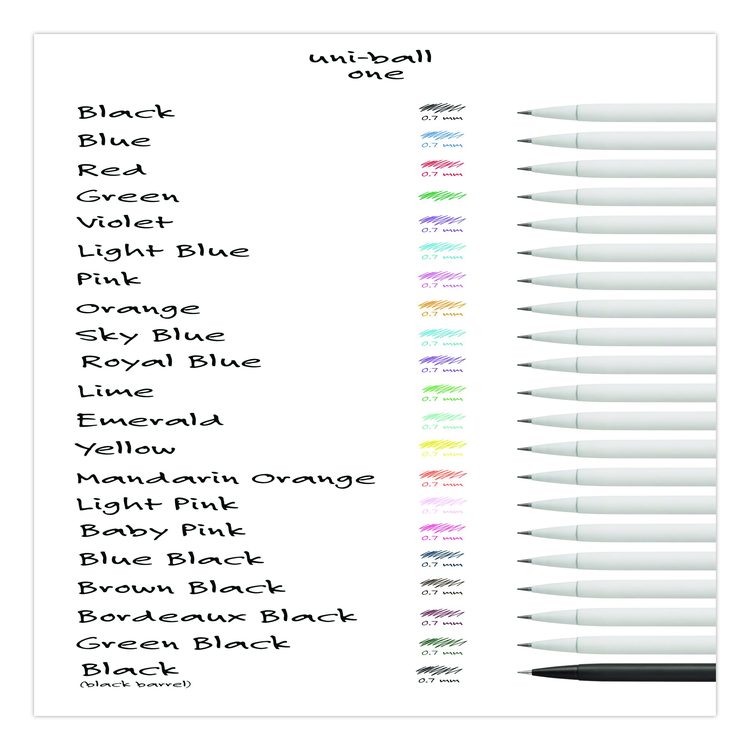 uni-ball
one
Black 0.7 mm
Blue 0.7 mm
Red 0.7 mm
Green
Violet 0.7 mm
Light Blue 0.7 mm
Pink 0.7 mm
Orange 0.7 mm
Sky Blue 0.7 mm
Royal Blue 0.7 mm
Lime 0.7 mm
Emerald 0.7 mm
Yellow 0.7 mm
Mandarin Orange 0.7 mm
Light Pink
Baby Pink 0.7 mm
Blue Black 0.7 mm
Brown Black 0.7 mm
Bordeaux Black 0.7 mm
Green Black 0.7 mm
Black 0.7 mm
(black barrel)